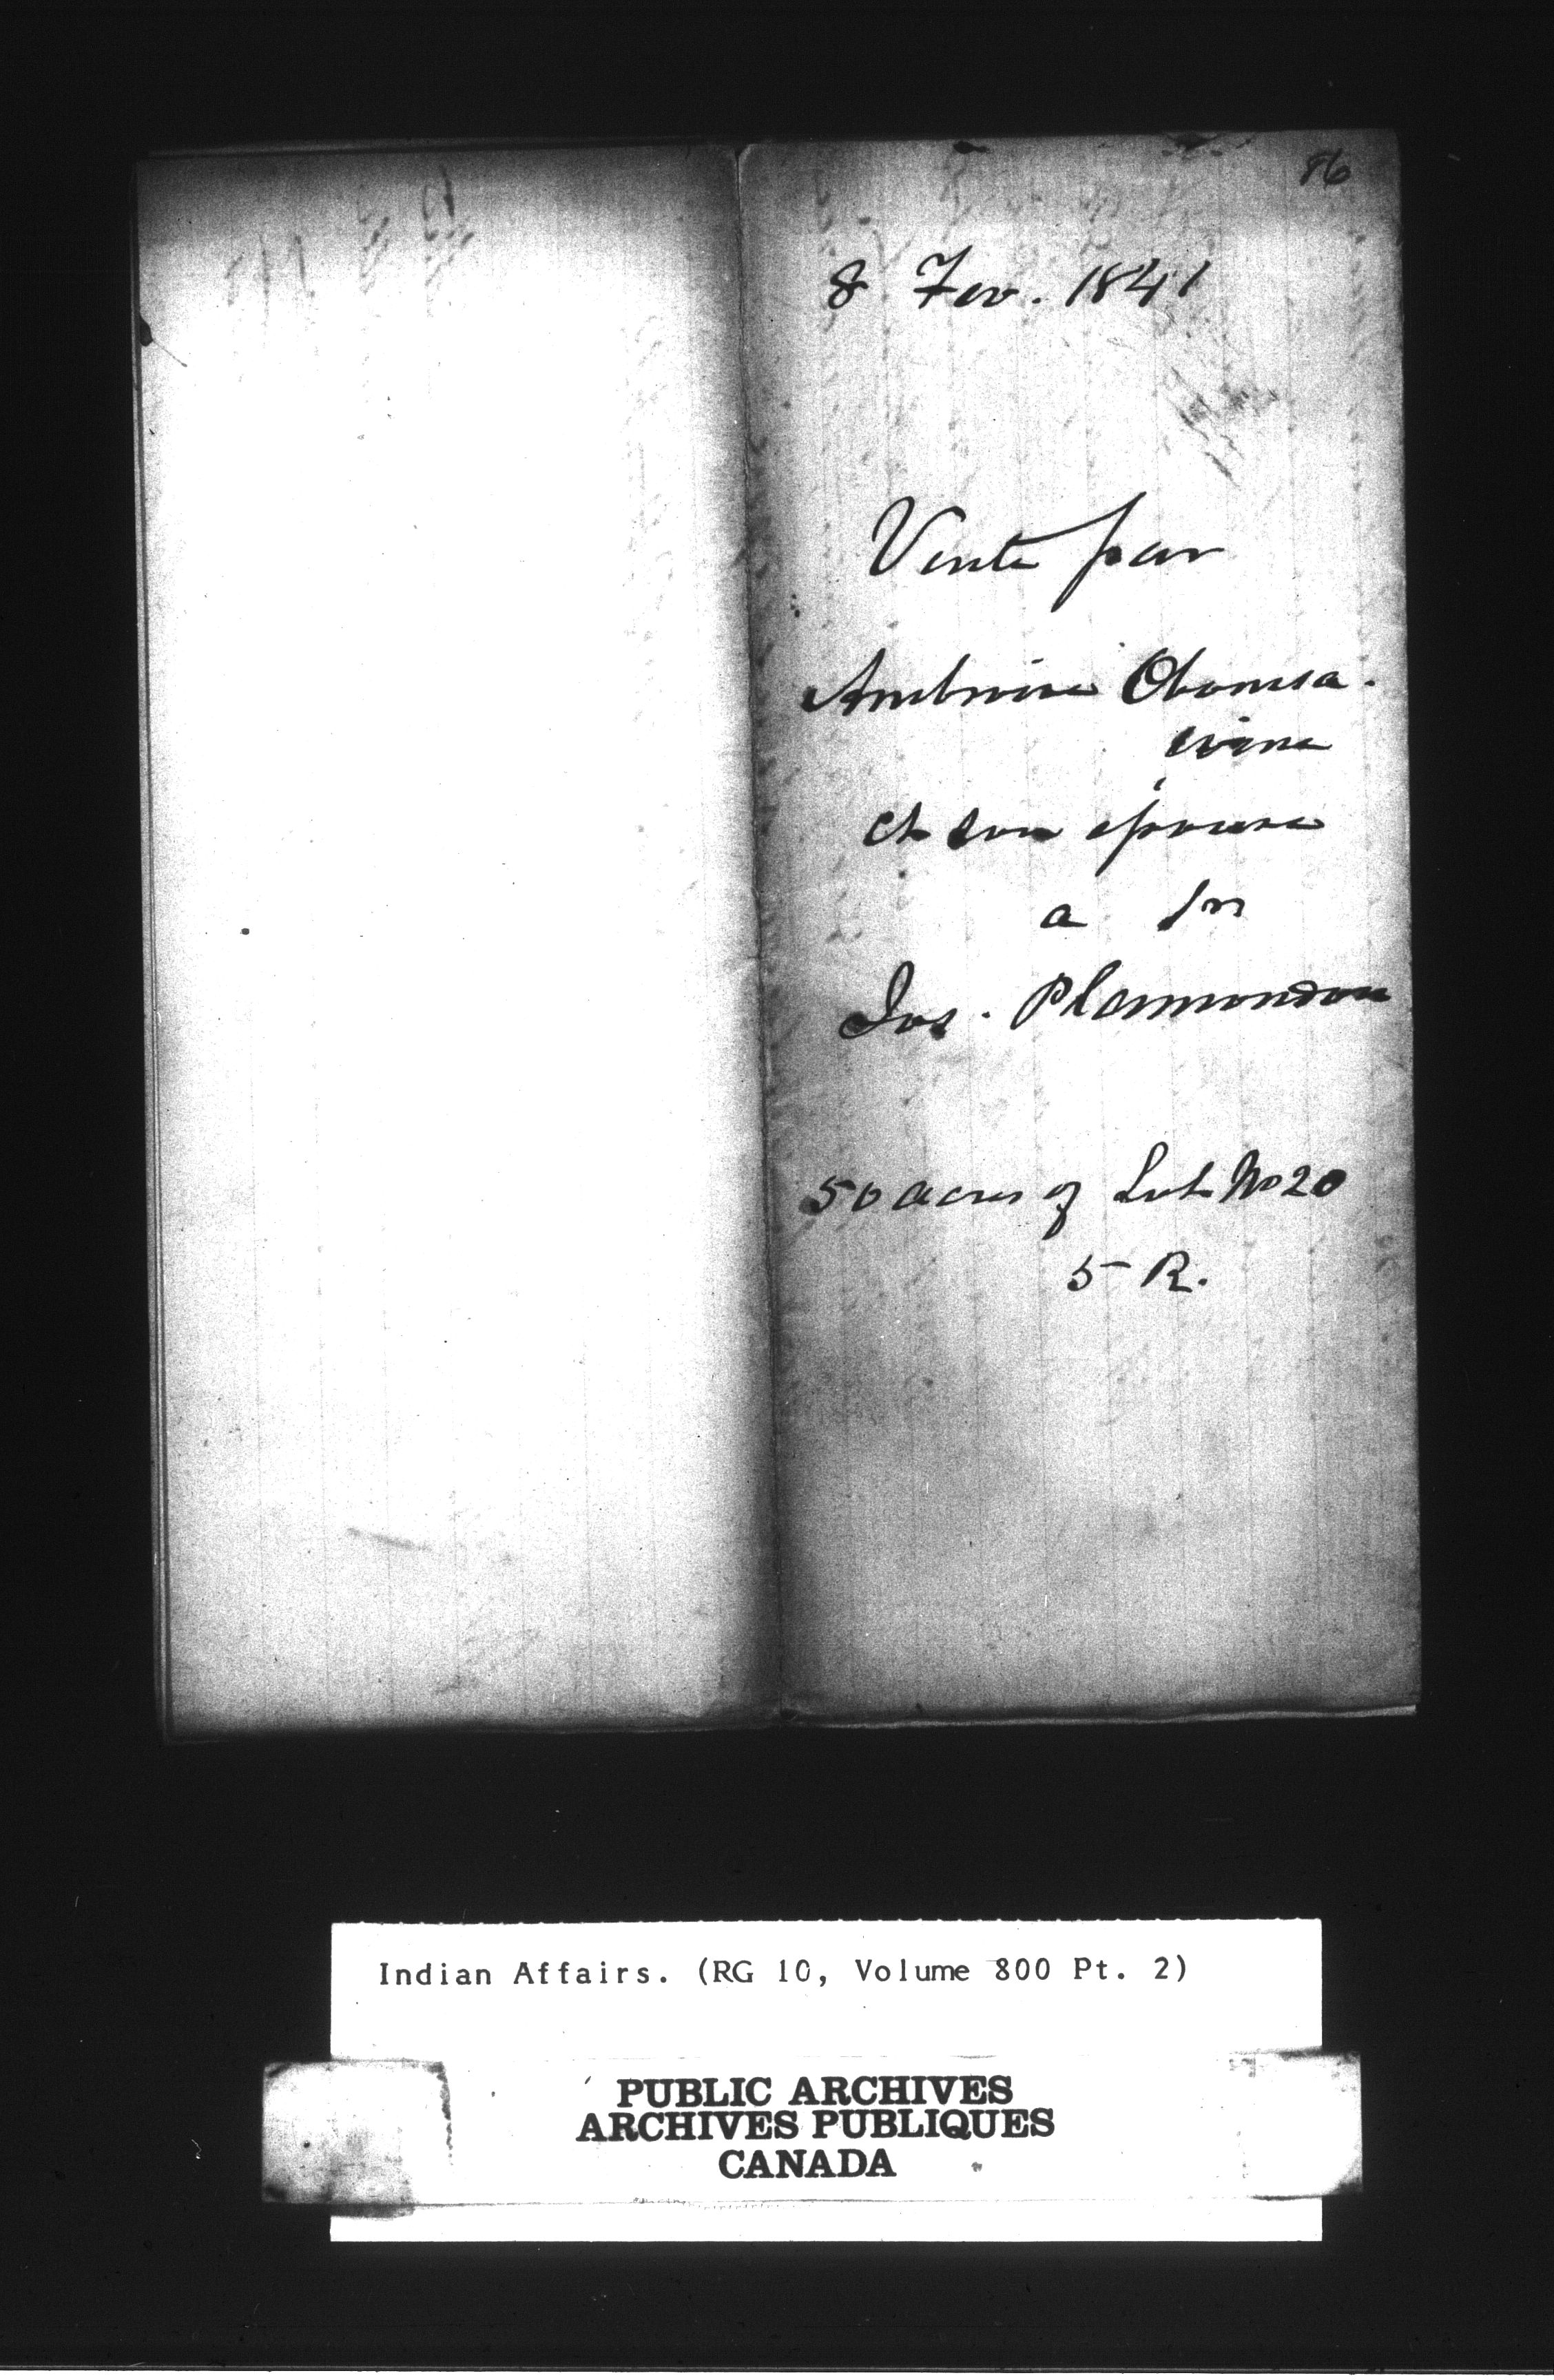 86
8 Fev. 1841
Vente par
Ambroise Obomsa-
wine
et son épouse
a
Jos. Plamondon
50 acres of Lot No 20
5 R.
Indian Affairs. (RG 10, Volume 800 Pt. 2)
PUBLIC ARCHIVES
ARCHIVES PUBLIQUES
CANADA